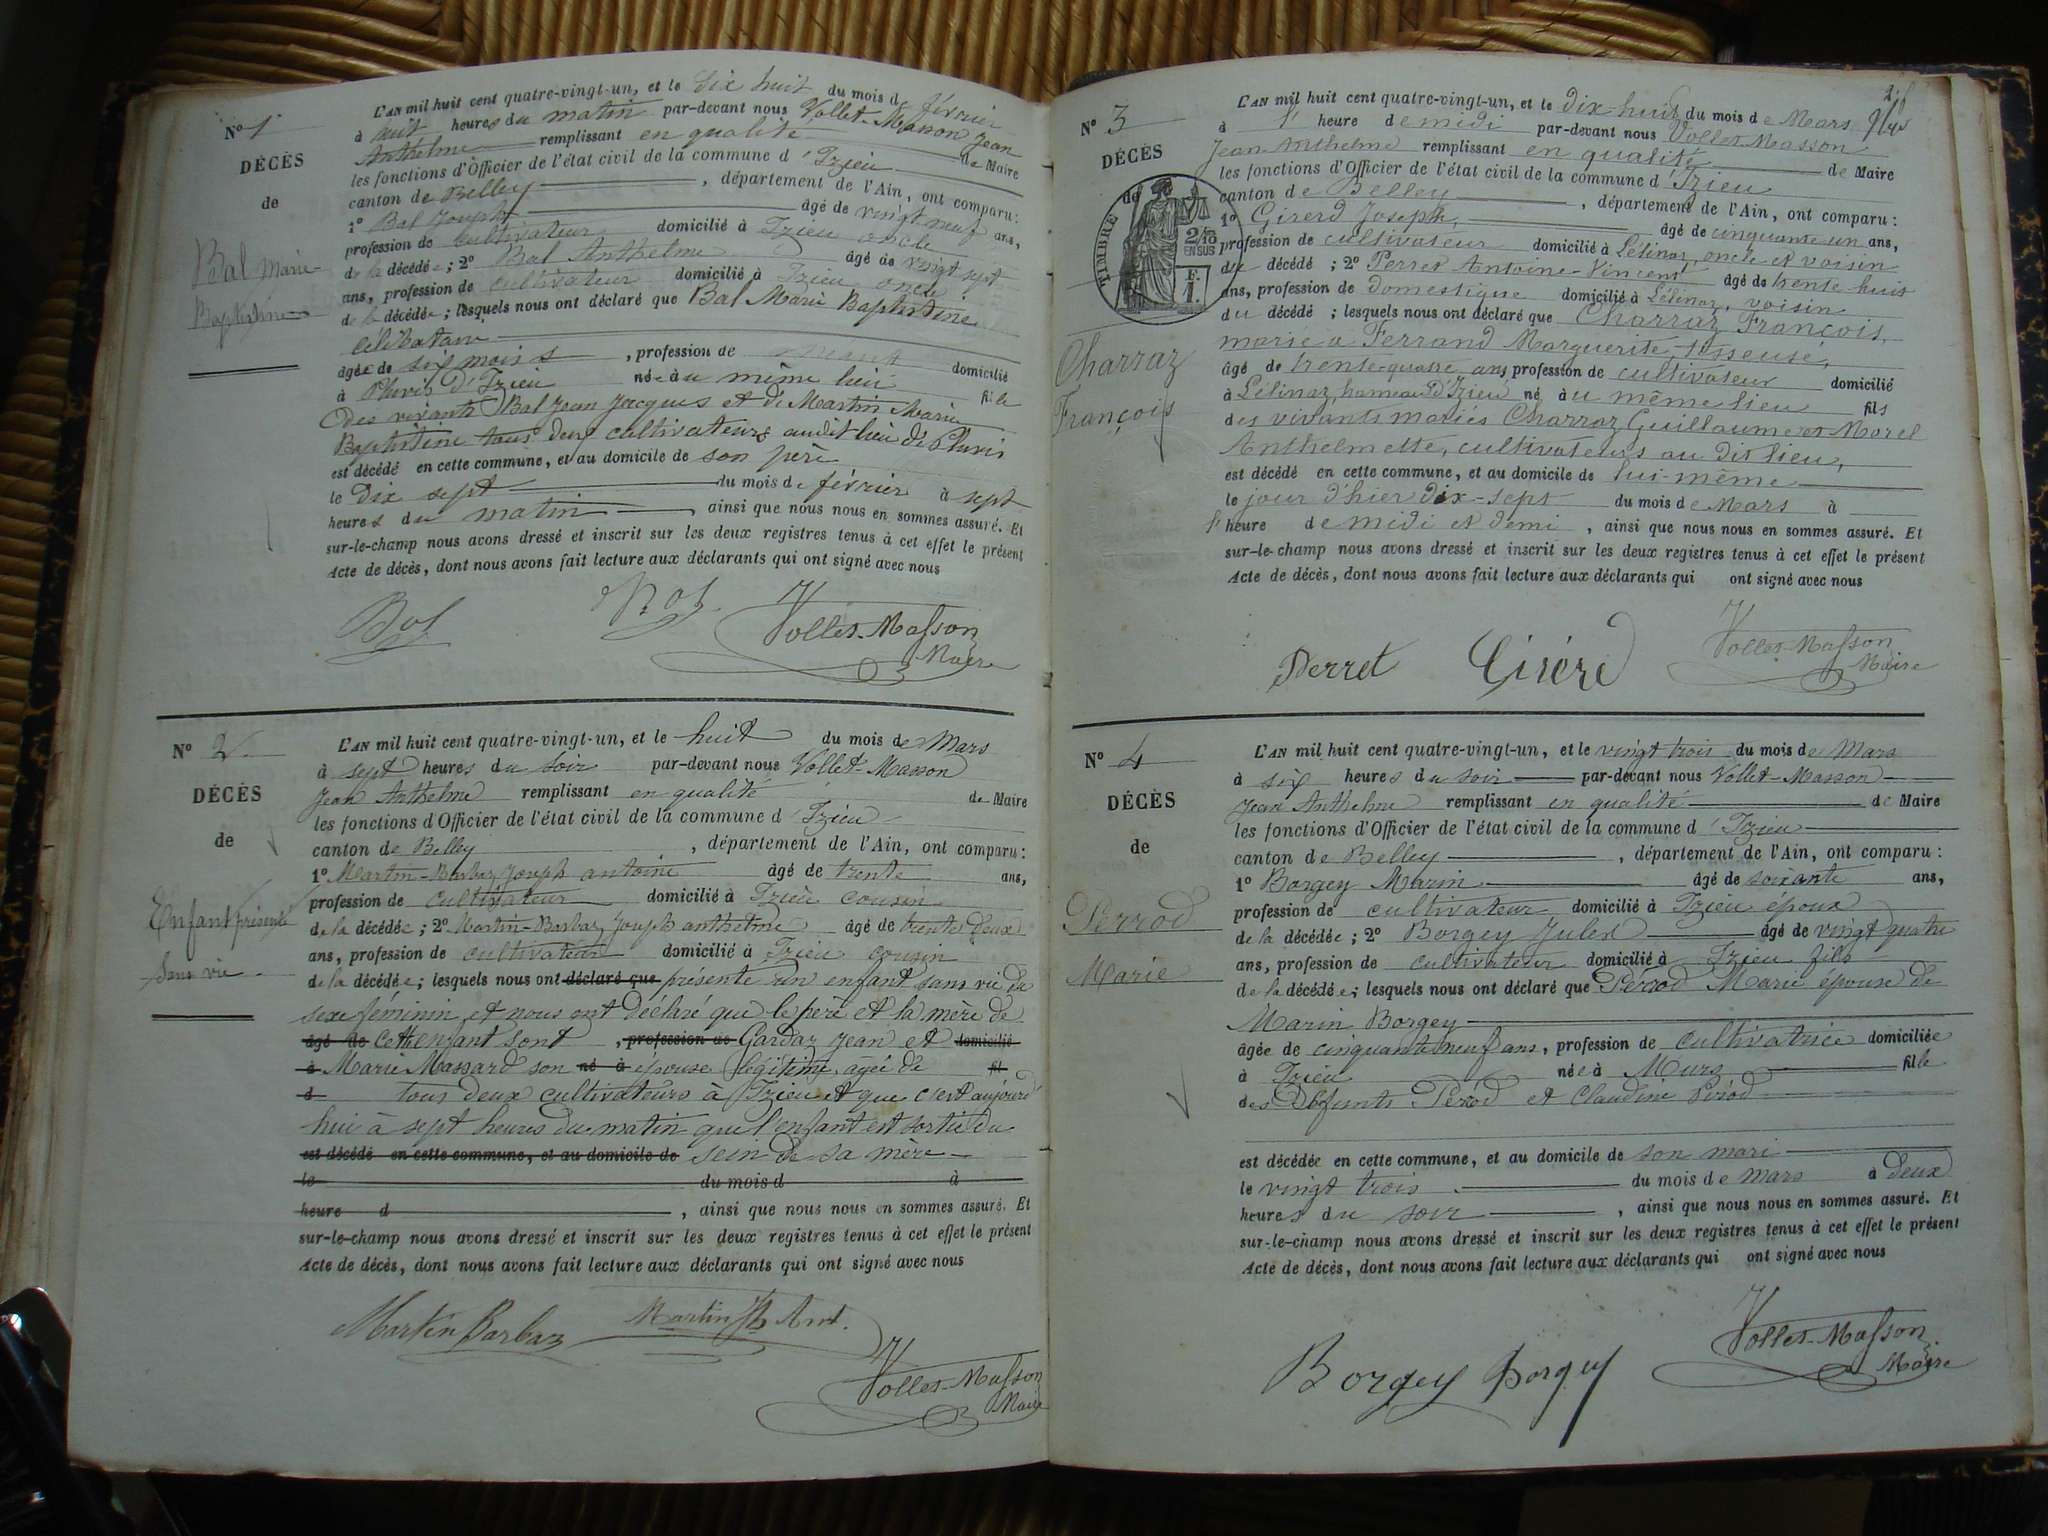 Nº 1
DÉCÈS
de
Bal Marie
Baptistine
L'AN mil huit cent quatre-vingt-un, et le dix huit du mois de février
à huit heures du matin par-devant nous Vollet-Masson Jean
Anthelme remplissant en qualité de Maire
les fonctions d'Officier de l'état civil de la commune d'Izieu
canton de Belley, département de l'Ain, ont comparu :
1º Bal Joseph âgé de vingt neuf ans,
profession de cultivateur domicilié à Izieu oncle
de la décédée ; 2º Bal Anthelme âgé de vingt sept
ans, profession de cultivateur domicilié à Izieu oncle
de la décédée ; lesquels nous ont déclaré que Bal Marie Baptistine
célibataire
âgée de six mois, profession de néant domicilié
à Pluvis d'Izieu née au même lieu fille
des vivants Bal Jean Jacques et de Martin Marie
Baptistine tous deux cultivateurs audit lieu de Pluvis
est décédé en cette commune, et au domicile de son père
le dix sept du mois de février à sept
heures du matin, ainsi que nous nous en sommes assuré. Et
sur-le-champ nous avons dressé et inscrit sur les deux registres tenus à cet effet le présent
Acte de décès, dont nous avons fait lecture aux déclarants qui ont signé avec nous
Bal Bal Vollet-Masson
Maire
Nº 2
DÉCÈS
de
Enfant présenté
sans vie
L'AN mil huit cent quatre-vingt-un, et le huit du mois de Mars
à sept heures du soir par-devant nous Vollet-Masson
Jean Anthelme remplissant en qualité de Maire
les fonctions d'Officier de l'état civil de la commune d'Izieu
canton de Belley, département de l'Ain, ont comparu :
1º Martin-Barbaz Joseph antoine âgé de trente ans,
profession de cultivateur domicilié à Izieu cousin
de la décédée ; 2º Martin-Barbaz Joseph anthelme âgé de trente deux
ans, profession de cultivateur domicilié à Izieu cousin
de la décédée ; lesquels nous ont déclaré que présenté un enfant sans vie du
sexe féminin et nous ont déclaré que le père et la mère de
âgé de cette enfant sont, profession de Gardaz Jean et domicilié
à Marie Massard son né à épouse légitime, agée de fil
d tous deux cultivateurs à Izieu et que c'est aujourd'
hui à sept heures du matin que l'enfant est sortie du
est décédé en cette commune, et au domicile de sein de sa mère
le du mois d à
heure d , ainsi que nous nous en sommes assuré. Et
sur-le-champ nous avons dressé et inscrit sur les deux registres tenus à cet effet le présent
Acte de décès, dont nous avons fait lecture aux déclarants qui ont signé avec nous
Martin Barbaz Martin Jh Ant.
Vollet-Masson
Maire
Nº 3
DÉCÈS
de
TIMBRE
2/10
EN SUS
F.
1.
Charraz
François
L'AN mil huit cent quatre-vingt-un, et le dix-huit du mois de Mars
à 1 heure de midi par-devant nous Vollet Masson
Jean Anthelme remplissant en qualité de Maire
les fonctions d'Officier de l'état civil de la commune d'Izieu
canton de Belley, département de l'Ain, ont comparu :
1º Girerd Joseph, âgé de cinquante un ans,
profession de cultivateur domicilié à Lélinaz, oncle et voisin
du décédé ; 2º Perret Antoine-Vincent âgé de trente-huit
ans, profession de domestique domicilié à Lélinaz, voisin
du décédé ; lesquels nous ont déclaré que Charraz, François,
marié à Ferrand Marguerite, tisseuse,
âgé de trente-quatre ans, profession de cultivateur domicilié
à Lélinaz, hameau d'Izieu né au même lieu fils
des vivants mariés Charraz Guillaume et Morel
Anthelmette, cultivateurs au dit lieu,
est décédé en cette commune, et au domicile de lui-même
le jour d'hier dix-sept du mois de Mars à
1 heure de midi et demi, ainsi que nous nous en sommes assuré. Et
sur-le-champ nous avons dressé et inscrit sur les deux registres tenus à cet effet le présent
Acte de décès, dont nous avons fait lecture aux déclarants qui ont signé avec nous
Perret Girerd Vollet-Masson
Maire
Nº 4
DÉCÈS
de
Perrod
Marie
L'AN mil huit cent quatre-vingt-un, et le vingt trois du mois de Mars
à six heures du soir par-devant nous Vollet-Masson
Jean Anthelme remplissant en qualité de Maire
les fonctions d'Officier de l'état civil de la commune d'Izieu
canton de Belley, département de l'Ain, ont comparu :
1º Borgey Marin âgé de soixante ans,
profession de cultivateur domicilié à Izieu époux
de la décédée ; 2º Borgey Jules âgé de vingt quatre
ans, profession de cultivateur domicilié à Izieu fils
de la décédée ; lesquels nous ont déclaré que Pérod Marie épouse de
Marin Borgey
âgée de cinquante neuf ans, profession de cultivatrice domiciliée
à Izieu née à Murs fille
des Défunts Pérod et Claudine Pérod
est décédée en cette commune, et au domicile de son mari
le vingt trois du mois de mars à deux
heures du soir, ainsi que nous nous en sommes assuré. Et
sur-le-champ nous avons dressé et inscrit sur les deux registres tenus à cet effet le présent
Acte de décès, dont nous avons fait lecture aux déclarants qui ont signé avec nous
Borgey Borgey Vollet-Masson
Maire